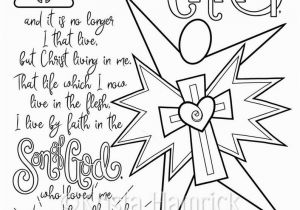 and it is no longer
I that live,
but Christ living in me.
That life which I now
live in the flesh,
I live by faith in the
Son of God,
who loved me